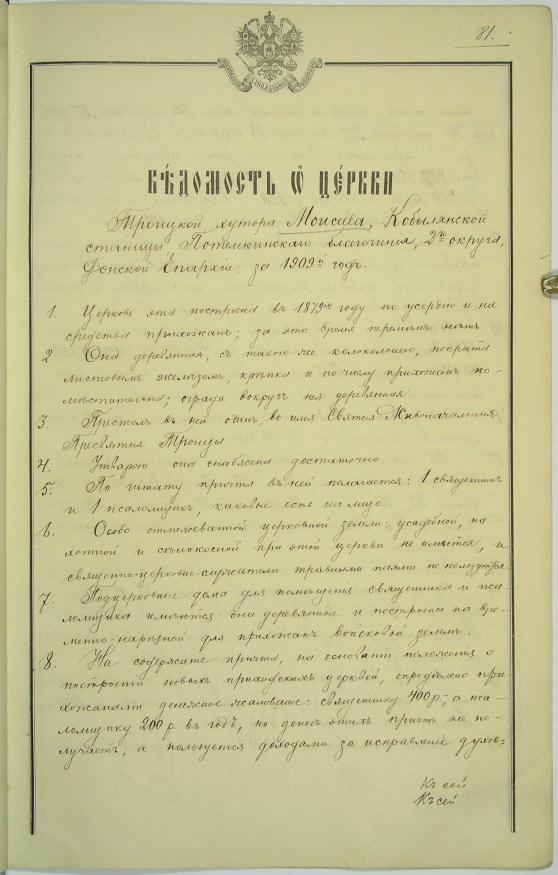 81.
ВѢДОМОСТЬ Ѿ ЦЕРКВИ
Троицкой хутора Моисеева, Кобылянской
станицы Потемкинскаго благочинія, 2го округа,
Донской Епархіи, за 1909й годъ.
1. Церковь эта построена въ 1879мъ году по усердію и на
средства прихожанъ; за это время перемѣнъ нѣтъ
2 Она деревянная, съ такою-же колокольнею, покрыта
листовымъ желѣзомъ, крѣпка и по числу прихожанъ по-
мѣстительна; ограда вокругъ нея деревянная.
3. Престолъ въ ней одинъ, во имя Святыя Живоначальныя
Пресвятыя Троицы
4. Утварью она снабжена достаточно
5. По штату причта въ ней полагается: 1 священникъ
и 1 псаломщикъ, каковые есть на лицо.
6. Особо отмежеванной церковной земли: усадебной, па-
хотной и сѣнокосной при этой церкви не имѣется, и
священно-церковно-служители травными паями не пользуются
7. Подцерковные дома для помѣщенія священника и пса-
ломщика имѣются: они деревянные и построены на вре-
менно-нарѣзной для прихожанъ войсковой землѣ.
8. На содержаніе причта, на основаніи положенія о
построеніи новыхъ приходскихъ церквей, опредѣлено при-
хожанами денежное жалованье: священнику 400 р., а пса-
ломщику 200 р. въ годъ, но денегъ этихъ причтъ не по-
лучаетъ, а пользуется доходами за исправленіе духов=
Къ сей
Къ сей